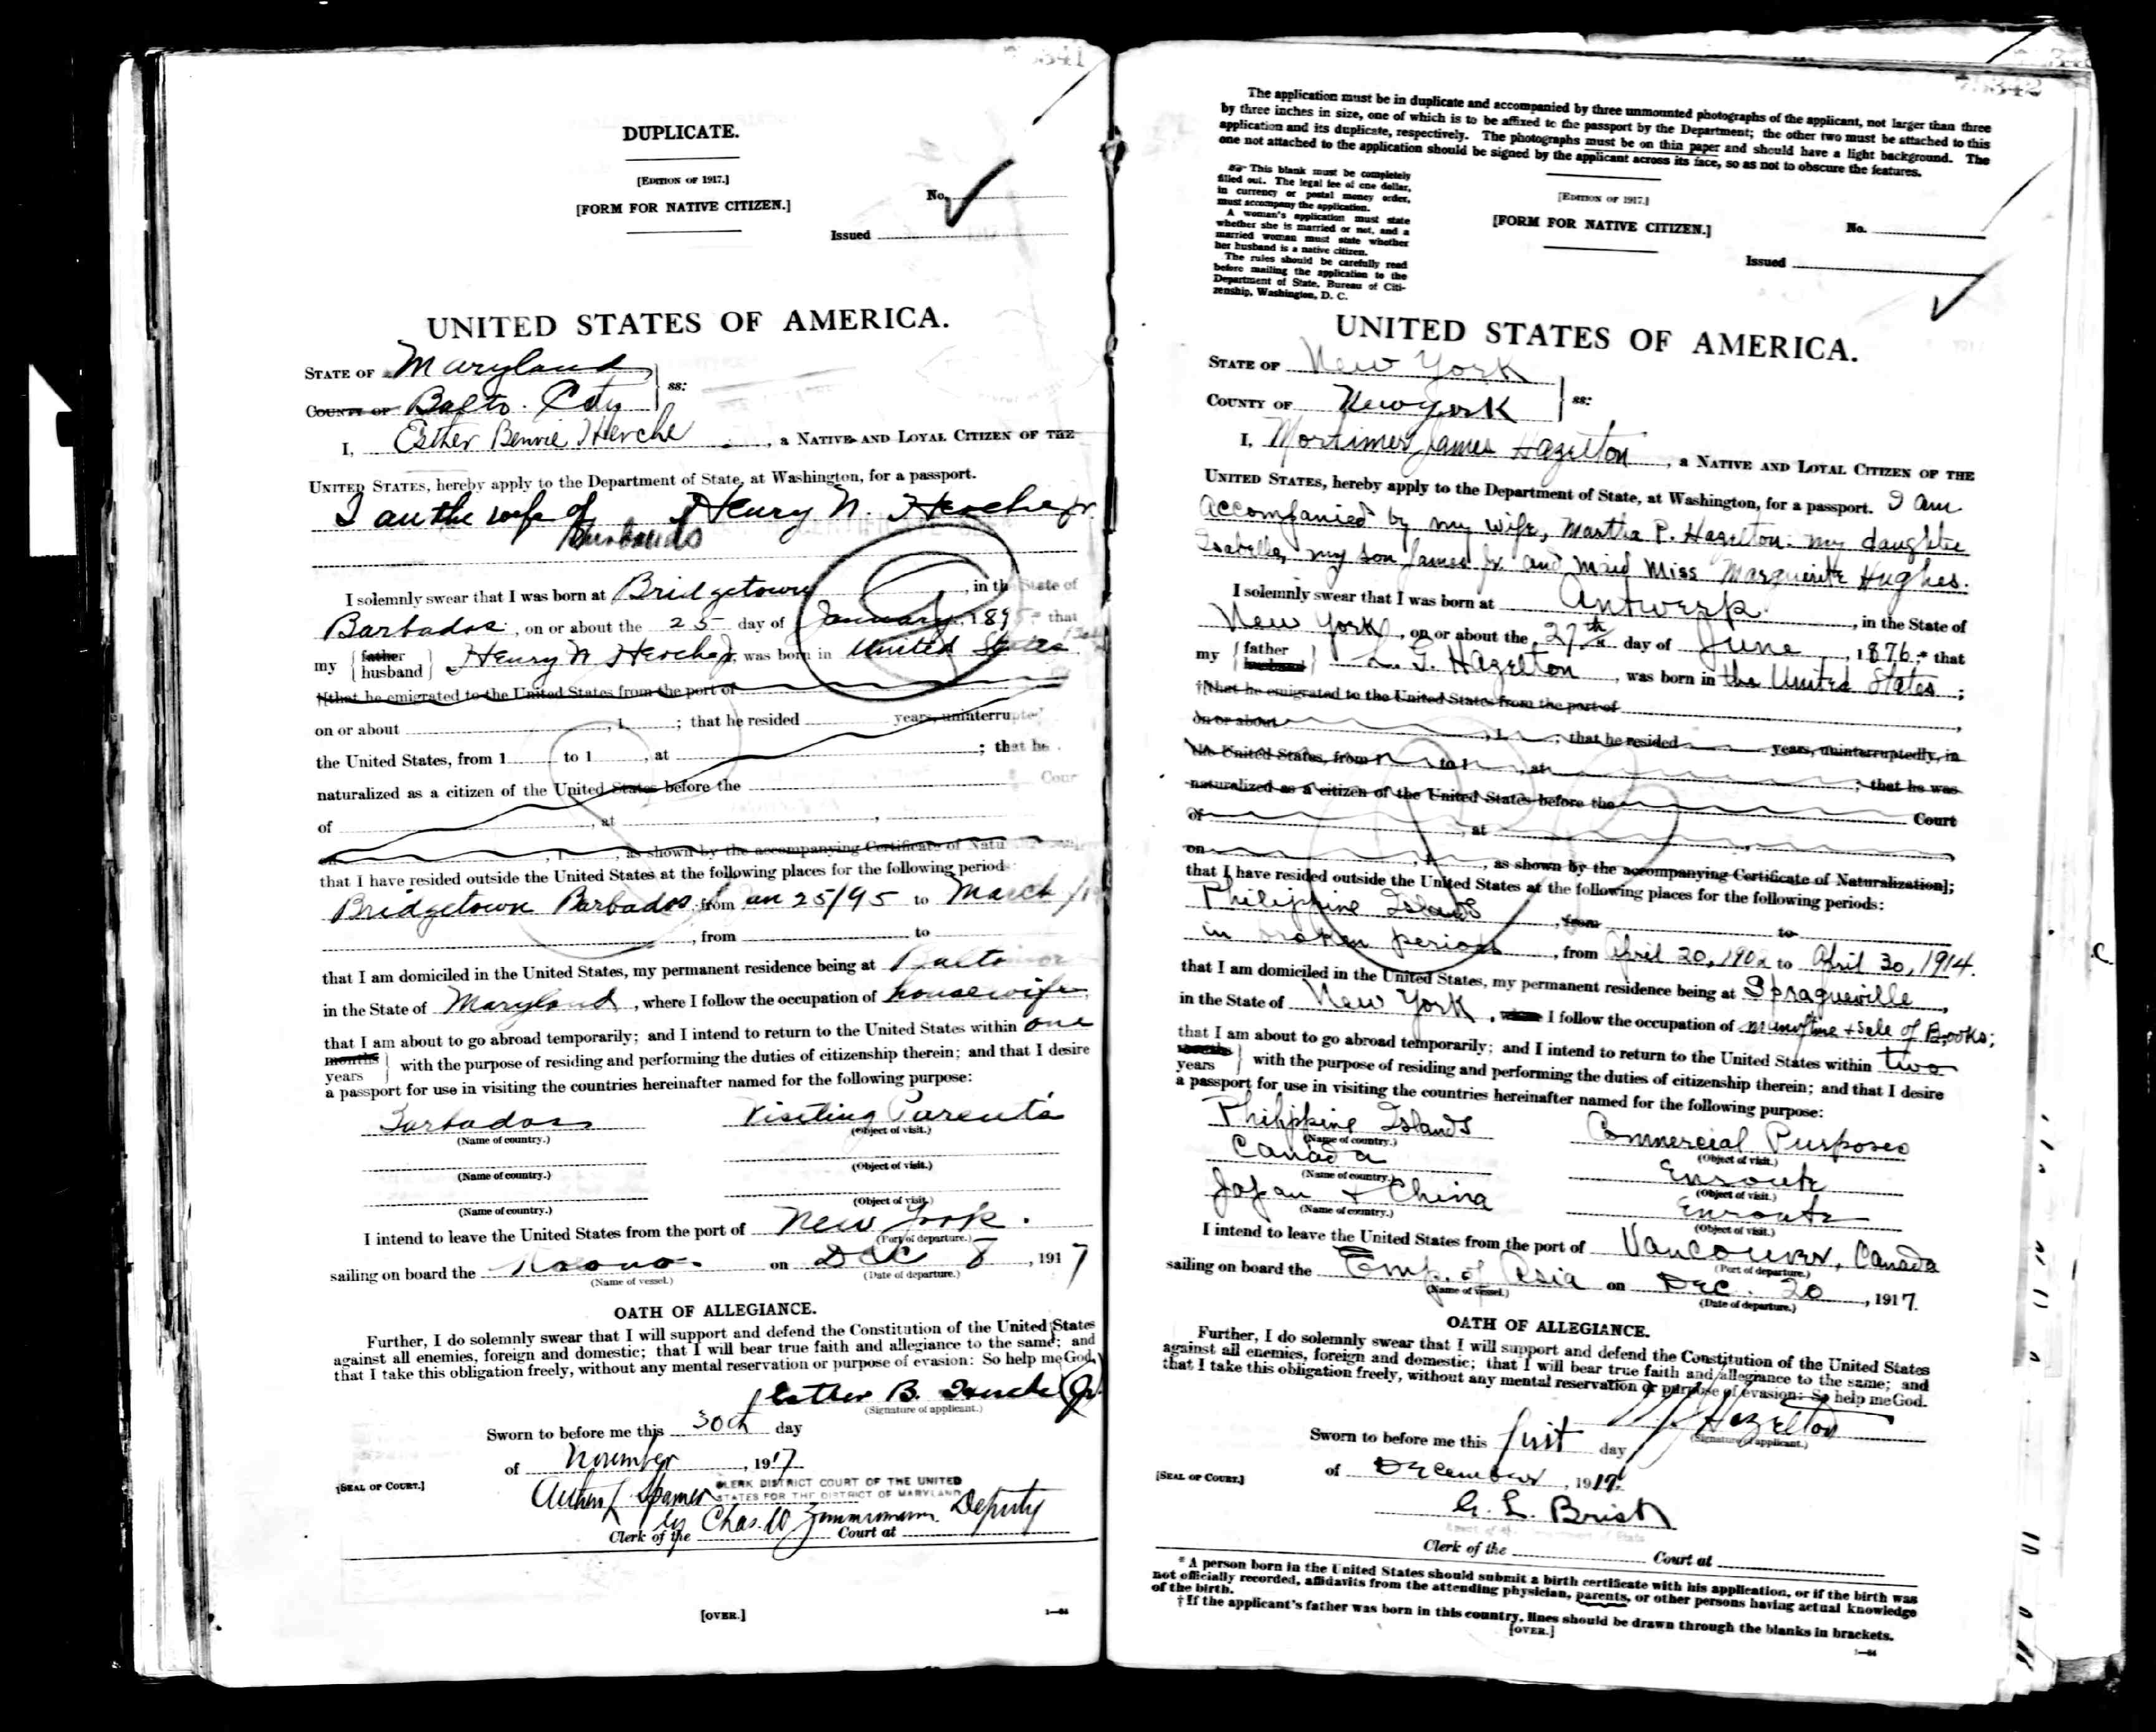 DUPLICATE.
[EDITION OF 1917.]
[FORM FOR NATIVE CITIZEN.]
No.
Issued
UNITED STATES OF AMERICA.
STATE OF Maryland
COUNTY OF Balto. City ss:
I, Esther Bennie Herche, a NATIVE AND LOYAL CITIZEN OF THE
UNITED STATES, hereby apply to the Department of State, at Washington, for a passport.
I am the wife of Henry N. Herche Jr.
Husbands
I solemnly swear that I was born at Bridgetown, in the State of
Barbados, on or about the 25 day of January, 1895; that
my {father husband} Henry N Herche Jr, was born in United States
†[that he emigrated to the United States from the port of
on or about , 1 ; that he resided years, uninterrupted
the United States, from 1 to 1 , at ; that he
naturalized as a citizen of the United States before the Cour
of , at ,
on , 1 , as shown by the accompanying Certificate of Natu
that I have resided outside the United States at the following places for the following period
Bridgetown Barbados, from Jan 25/95 to March /1
, from to
that I am domiciled in the United States, my permanent residence being at Baltimor
in the State of Maryland, where I follow the occupation of housewife,
that I am about to go abroad temporarily; and I intend to return to the United States within one
{months years} with the purpose of residing and performing the duties of citizenship therein; and that I desire
a passport for use in visiting the countries hereinafter named for the following purpose:
Barbados Visiting Parents
(Name of country.) (Object of visit.)
(Name of country.) (Object of visit.)
(Name of country.) (Object of visit.)
I intend to leave the United States from the port of New York.
(Port of departure.)
sailing on board the on Dec 8, 1917
(Name of vessel.) (Date of departure.)
OATH OF ALLEGIANCE.
Further, I do solemnly swear that I will support and defend the Constitution of the United States
against all enemies, foreign and domestic; that I will bear true faith and allegiance to the same; and
that I take this obligation freely, without any mental reservation or purpose of evasion: So help me God.
Esther B. Herche Jr.
(Signature of applicant.)
Sworn to before me this 30th day
of November, 1917
[SEAL OF COURT.]
CLERK DISTRICT COURT OF THE UNITED
STATES FOR THE DISTRICT OF MARYLAND
Arthur L Spamer
by Chas. W Zimmermann Deputy
Clerk of the Court at
[OVER.]
1—64
The application must be in duplicate and accompanied by three unmounted photographs of the applicant, not larger than three
by three inches in size, one of which is to be affixed to the passport by the Department; the other two must be attached to this
application and its duplicate, respectively. The photographs must be on thin paper and should have a light background. The
one not attached to the application should be signed by the applicant across its face, so as not to obscure the features.
This blank must be completely
filled out. The legal fee of one dollar,
in currency or postal money order,
must accompany the application.
A woman's application must state
whether she is married or not, and a
married woman must state whether
her husband is a native citizen.
The rules should be carefully read
before mailing the application to the
Department of State, Bureau of Citi-
zenship, Washington, D. C.
[EDITION OF 1917.]
[FORM FOR NATIVE CITIZEN.]
No.
Issued
UNITED STATES OF AMERICA.
STATE OF New York
COUNTY OF New York ss:
I, Mortimer James Hazelton, a NATIVE AND LOYAL CITIZEN OF THE
UNITED STATES, hereby apply to the Department of State, at Washington, for a passport. I am
accompanied by my wife, Martha P. Hazelton. my daughter
Isabelle, my son James Jr. and maid Miss Marguerite Hughes.
I solemnly swear that I was born at Antwerp, in the State of
New York, on or about the 27th day of June, 1876; that
my {father husband} L. G. Hazelton, was born in the United States;
†[that he emigrated to the United States from the port of ,
on or about , 1 ; that he resided years, uninterruptedly, in
the United States, from 1 to 1 , at ; that he was
naturalized as a citizen of the United States before the Court
of , at ,
on , 1 , as shown by the accompanying Certificate of Naturalization];
that I have resided outside the United States at the following places for the following periods:
Philippine Islands, from to
in broken periods, from April 20, 1902 to April 30, 1914.
that I am domiciled in the United States, my permanent residence being at Spragueville,
in the State of New York, where I follow the occupation of manuftre + sale of Books;
that I am about to go abroad temporarily; and I intend to return to the United States within two
{months years} with the purpose of residing and performing the duties of citizenship therein; and that I desire
a passport for use in visiting the countries hereinafter named for the following purpose:
Philippine Islands Commercial Purposes
(Name of country.) (Object of visit.)
Canada Enroute
(Name of country.) (Object of visit.)
Japan + China Enroute
(Name of country.) (Object of visit.)
I intend to leave the United States from the port of Vancouver, Canada
(Port of departure.)
sailing on board the Emp. of Asia on Dec. 20, 1917.
(Name of vessel.) (Date of departure.)
OATH OF ALLEGIANCE.
Further, I do solemnly swear that I will support and defend the Constitution of the United States
against all enemies, foreign and domestic; that I will bear true faith and allegiance to the same; and
that I take this obligation freely, without any mental reservation or purpose of evasion: So help me God.
M J Hazelton
(Signature of applicant.)
Sworn to before me this first day
of December, 1917.
[SEAL OF COURT.]
G. L. Brist
Clerk of the Court at
* A person born in the United States should submit a birth certificate with his application, or if the birth was
not officially recorded, affidavits from the attending physician, parents, or other persons having actual knowledge
of the birth.
† If the applicant's father was born in this country, lines should be drawn through the blanks in brackets.
[OVER.]
1—64